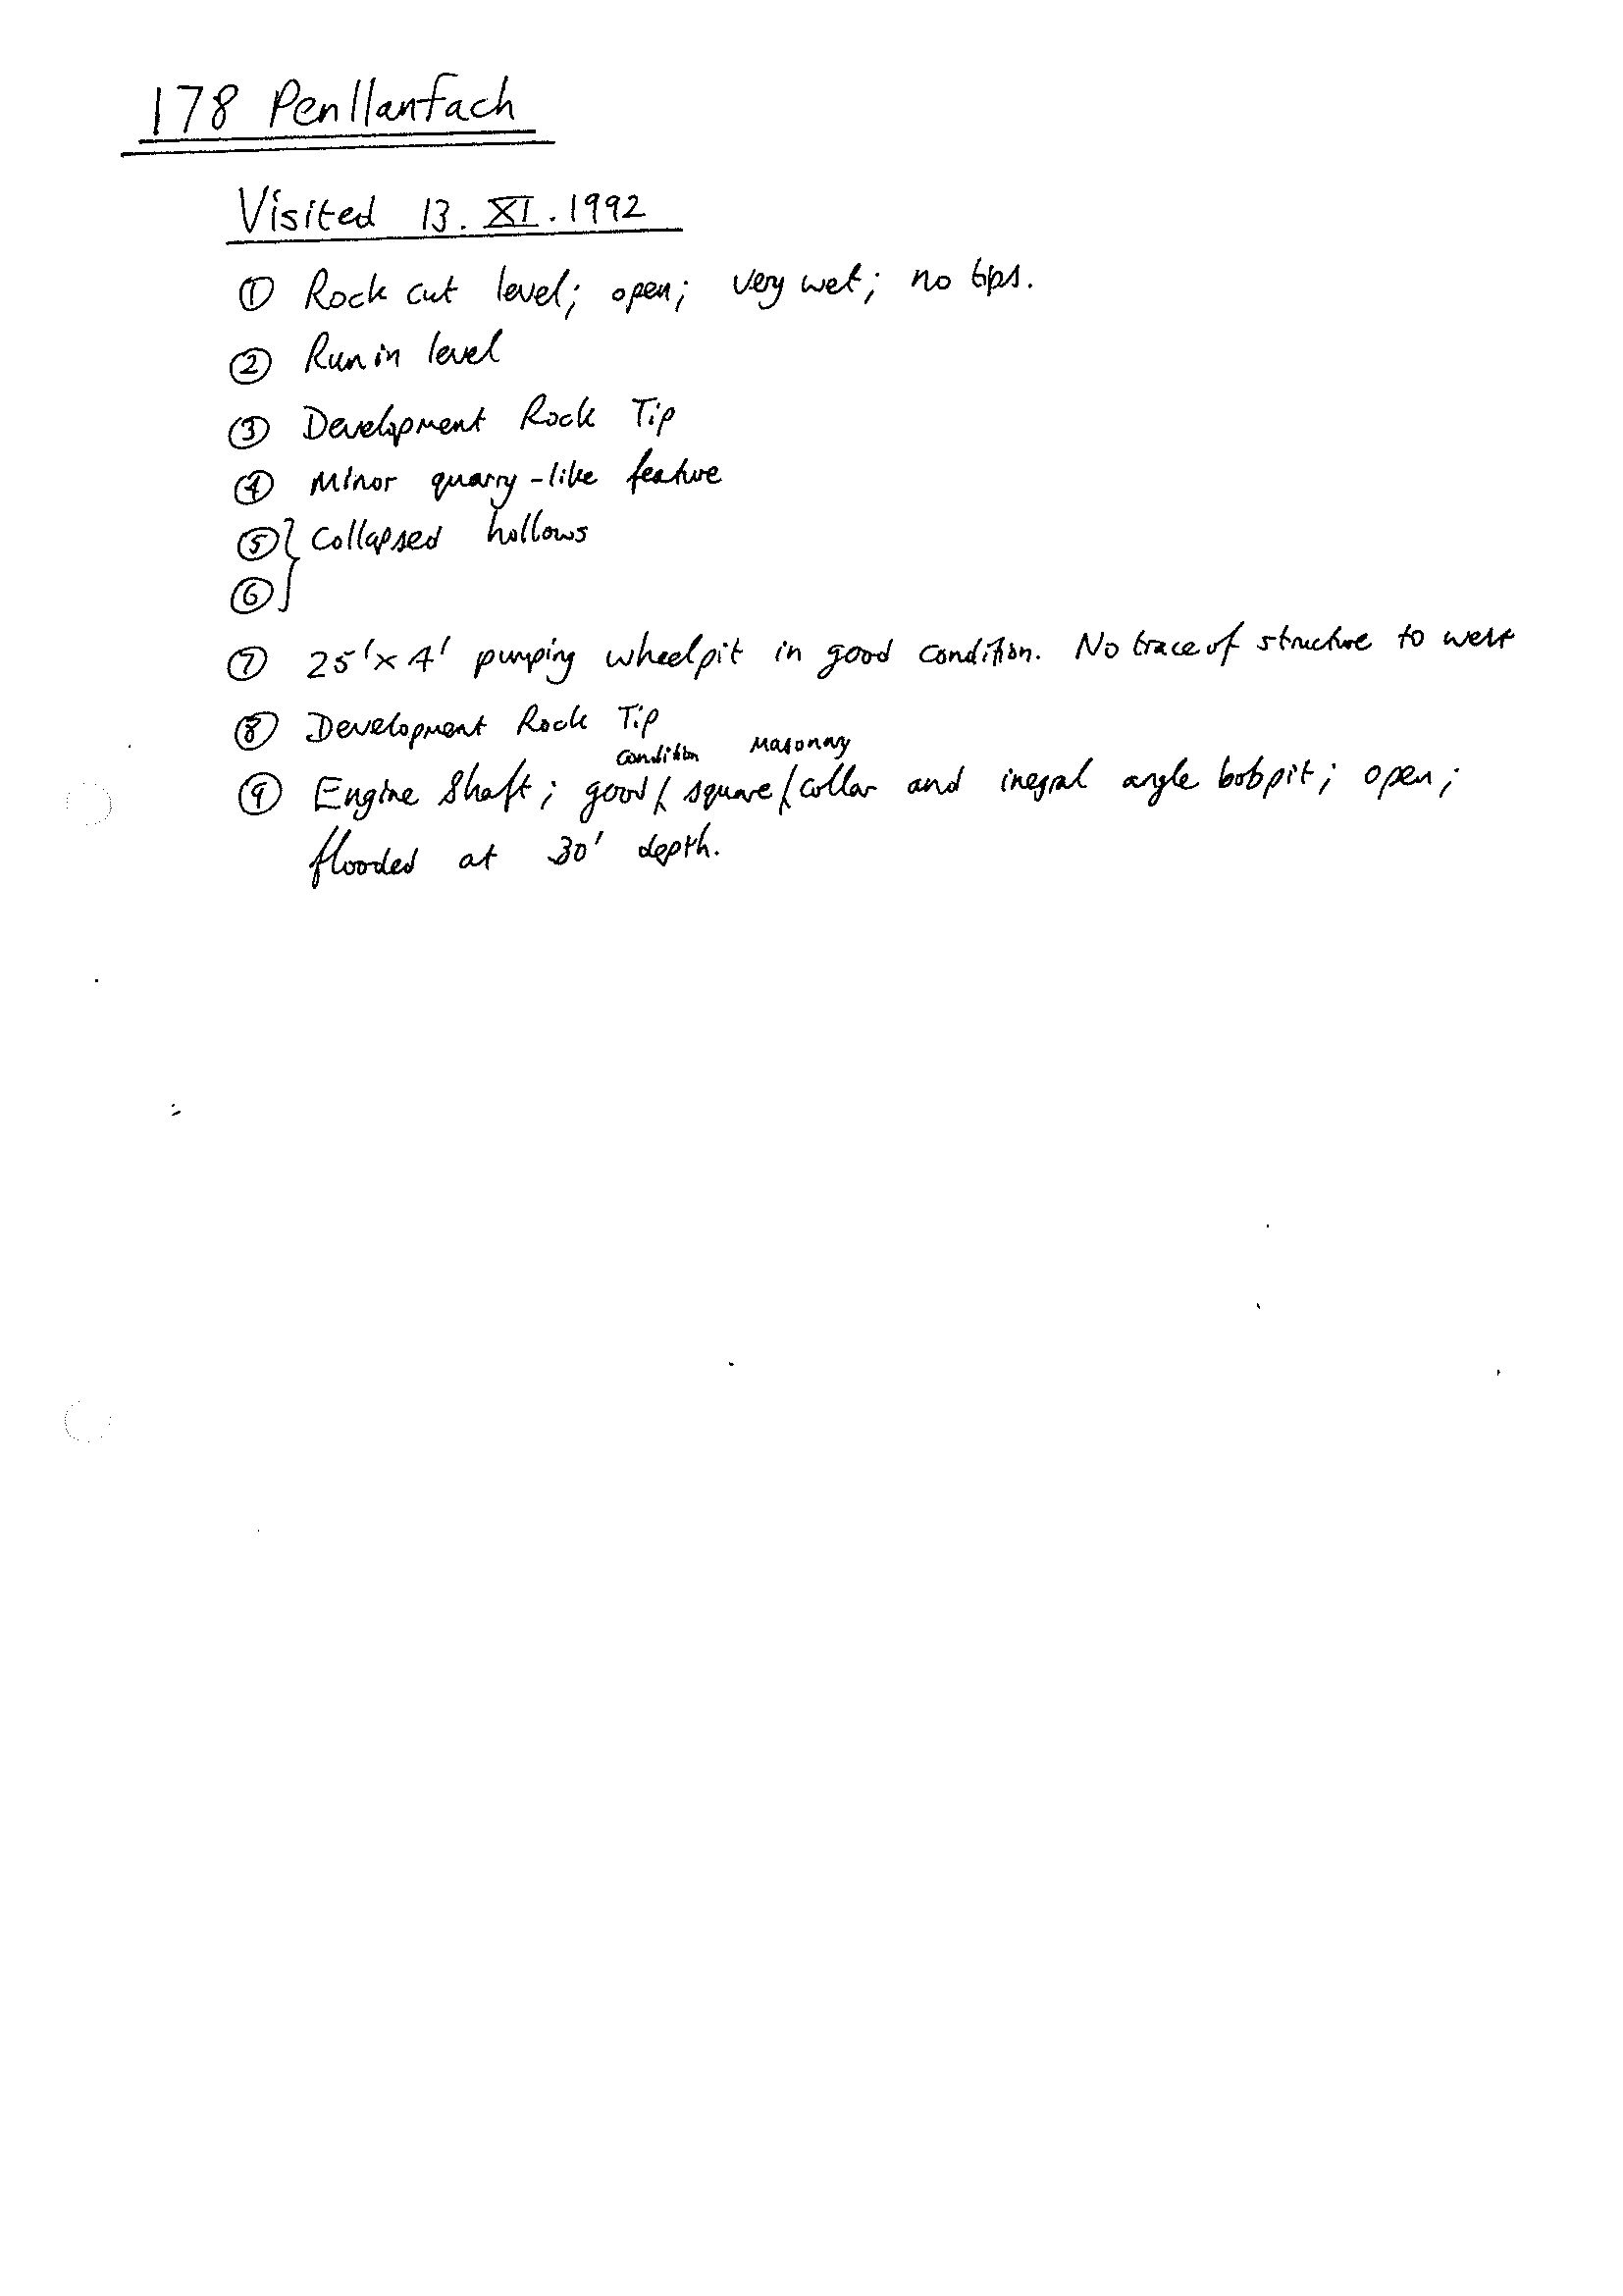 178 Penllanfach
Visited 13.XI.1992
① Rock cut level; open; very wet; no tips.
② Run in level
③ Development Rock Tip
④ Minor quarry-like feature
⑤ } Collapsed hollows
⑥
⑦ 25'x4' pumping wheelpit in good condition. No trace of structure to west
⑧ Development Rock Tip
condition masonry
⑨ Engine Shaft; good/ square/ collar and inegral angle bobpit; open;
flooded at 30' depth.